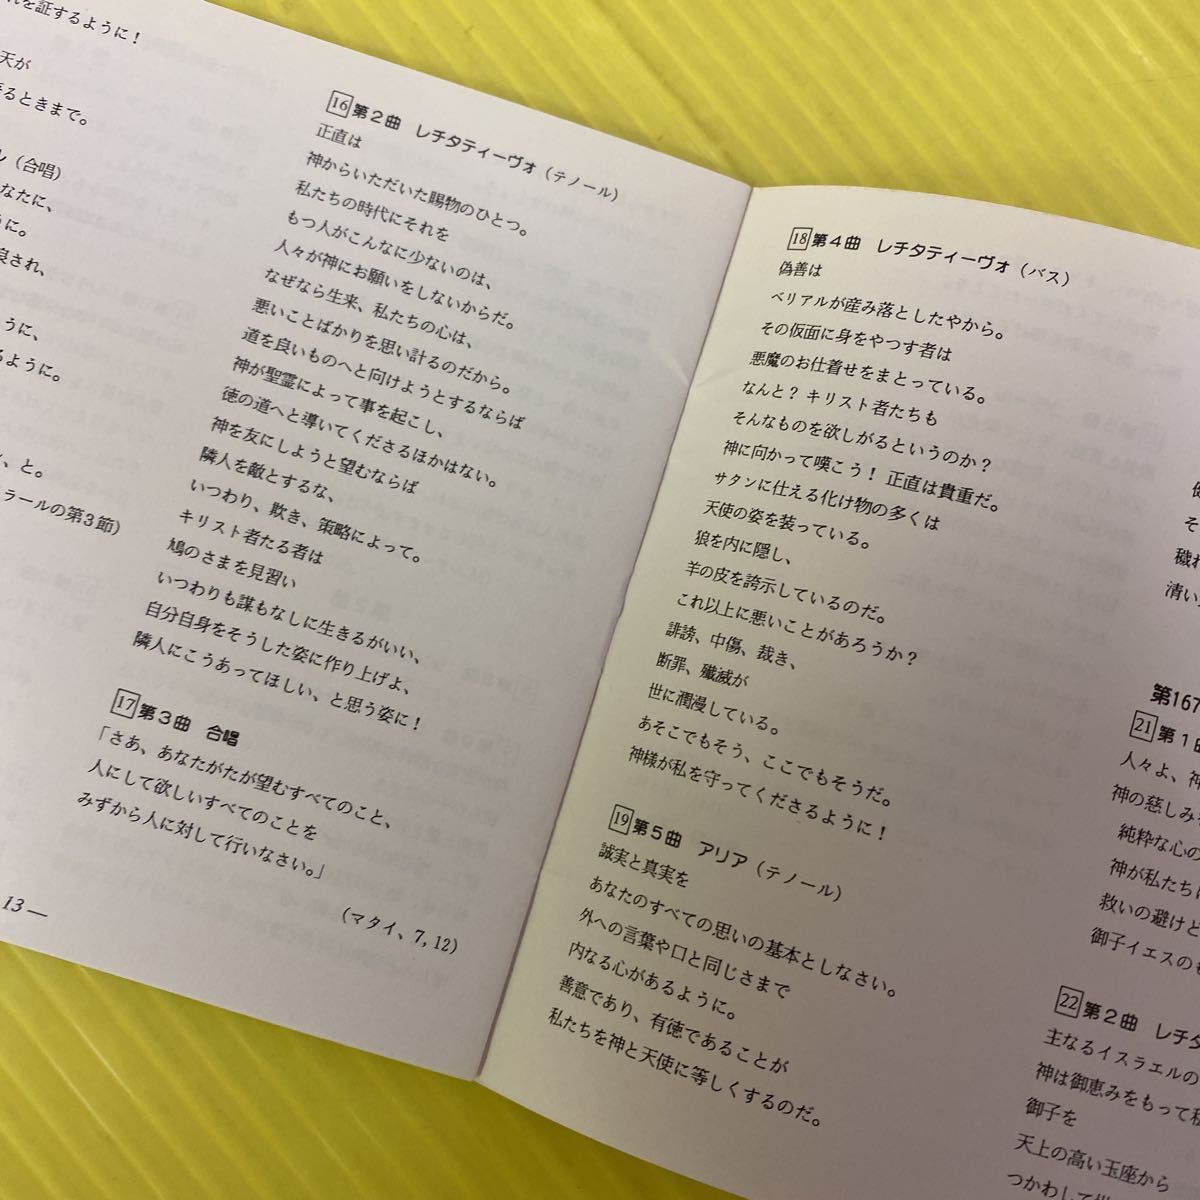 れを証するように！
天が
るときまで。
レ（合唱）
なたに、
うに。
良され、
うに、
るように。
、と。
ラールの第3節）
16 第2曲　レチタティーヴォ（テノール）
正直は
神からいただいた賜物のひとつ。
私たちの時代にそれを
もつ人がこんなに少ないのは、
人々が神にお願いをしないからだ。
なぜなら生来、私たちの心は、
悪いことばかりを思い計るのだから。
道を良いものへと向けようとするならば
神が聖霊によって事を起こし、
徳の道へと導いてくださるほかはない。
神を友にしようと望むならば
隣人を敵とするな、
いつわり、欺き、策略によって。
キリスト者たる者は
鳩のさまを見習い
いつわりも謀もなしに生きるがいい、
自分自身をそうした姿に作り上げよ、
隣人にこうあってほしい、と思う姿に！
17 第3曲　合唱
「さあ、あなたがたが望むすべてのこと、
人にして欲しいすべてのことを
みずから人に対して行いなさい。」
（マタイ、7, 12）
13 —
18 第4曲　レチタティーヴォ（バス）
偽善は
ベリアルが産み落としたやから。
その仮面に身をやつす者は
悪魔のお仕着せをまとっている。
なんと？ キリスト者たちも
そんなものを欲しがるというのか？
神に向かって嘆こう！ 正直は貴重だ。
サタンに仕える化け物の多くは
天使の姿を装っている。
狼を内に隠し、
羊の皮を誇示しているのだ。
これ以上に悪いことがあろうか？
誹謗、中傷、裁き、
断罪、殲滅が
世に瀰漫している。
あそこでもそう、ここでもそうだ。
神様が私を守ってくださるように！
19 第5曲　アリア（テノール）
誠実と真実を
あなたのすべての思いの基本としなさい。
外への言葉や口と同じさまで
内なる心があるように。
善意であり、有徳であることが
私たちを神と天使に等しくするのだ。
そ
穢れ
清い
第167
21 第1曲
人々よ、神
神の慈しみを
純粋な心の
神が私たちに
救いの避けど
御子イエスの
22 第2曲　レチタ
主なるイスラエルの
神は御恵みをもって私
御子を
天上の高い玉座から
つかわして